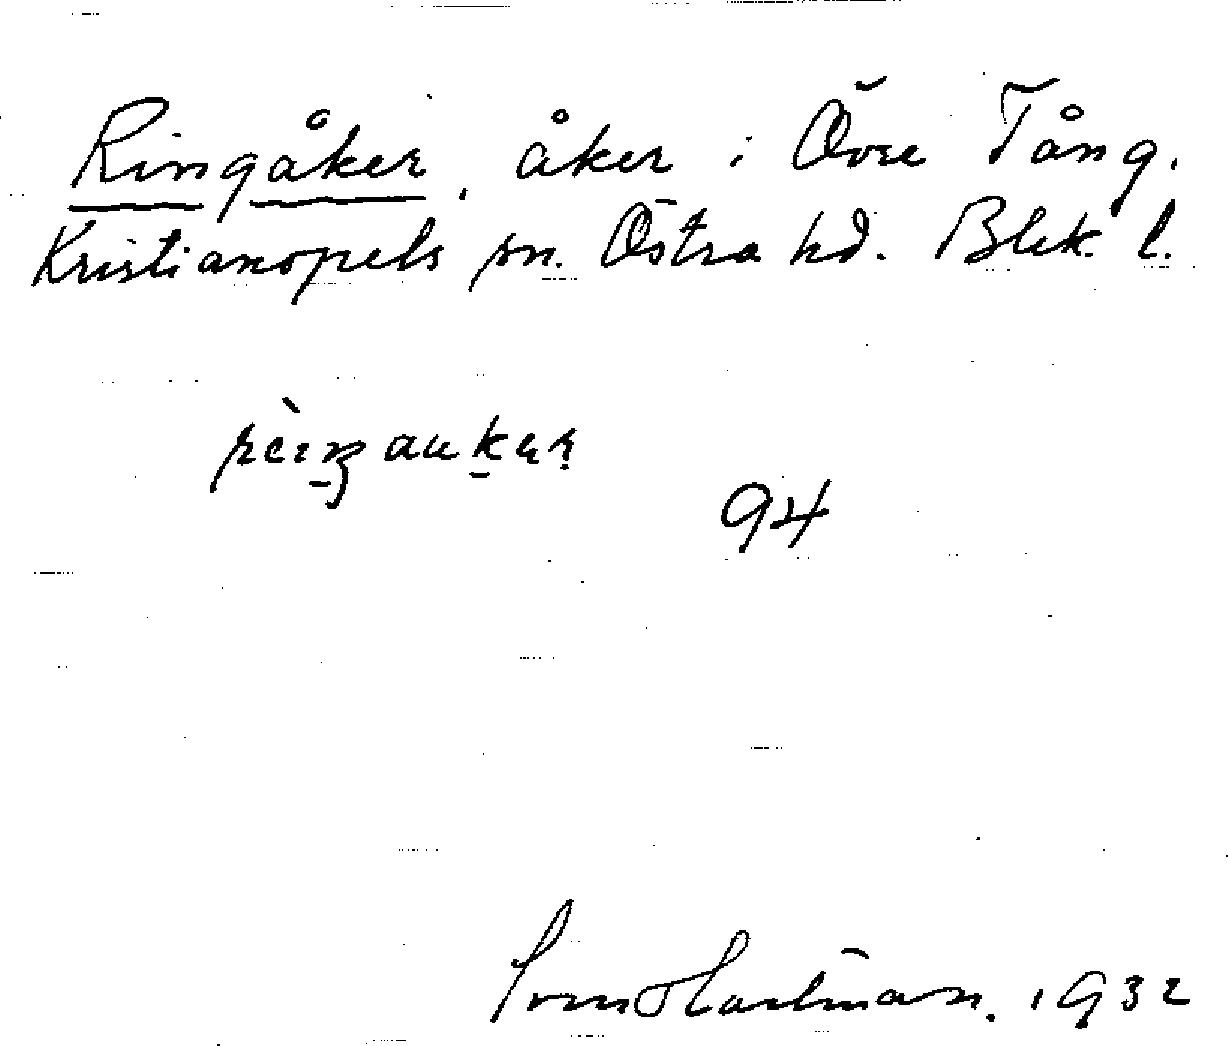 Ringåker, åker i Övre Tång.
Kristianopels sn. Östra hd. Blek. l.
94
Sven Hartman. 1932